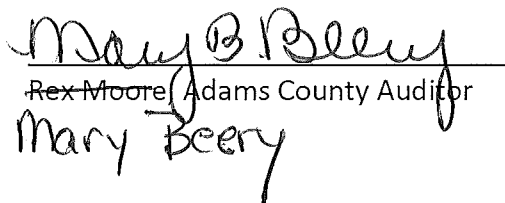 Mary B Beery
Rex Moore, Adams County Auditor
Mary Beery